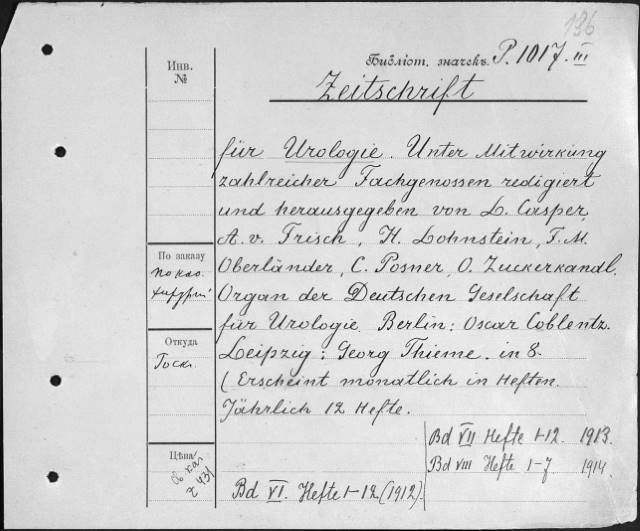 136
Библіот. значекъ P. 1017. III
Zeitschrift
für Urologie. Unter Mitwirkung
zahlreicher Fachgenossen redigiert
und herausgegeben von L. Casper,
A. v. Frisch, H. Lohnstein, F. M.
Oberländer, C. Posner, O. Zuckerkandl.
Organ der Deutschen Geselschaft
für Urologie. Berlin: Oscar Coblentz.
Leipzig: Georg Thieme. in 8.
(Erscheint monatlich in Heften.
Jährlich 12 Hefte.
Bd VI. Hefte 1-12 (1912).
Bd VII Hefte 1-12. 1913.
Bd VIII Hefte 1-7 1914.
Инв.
№
По заказу
Откуда
Госк.
Цѣна